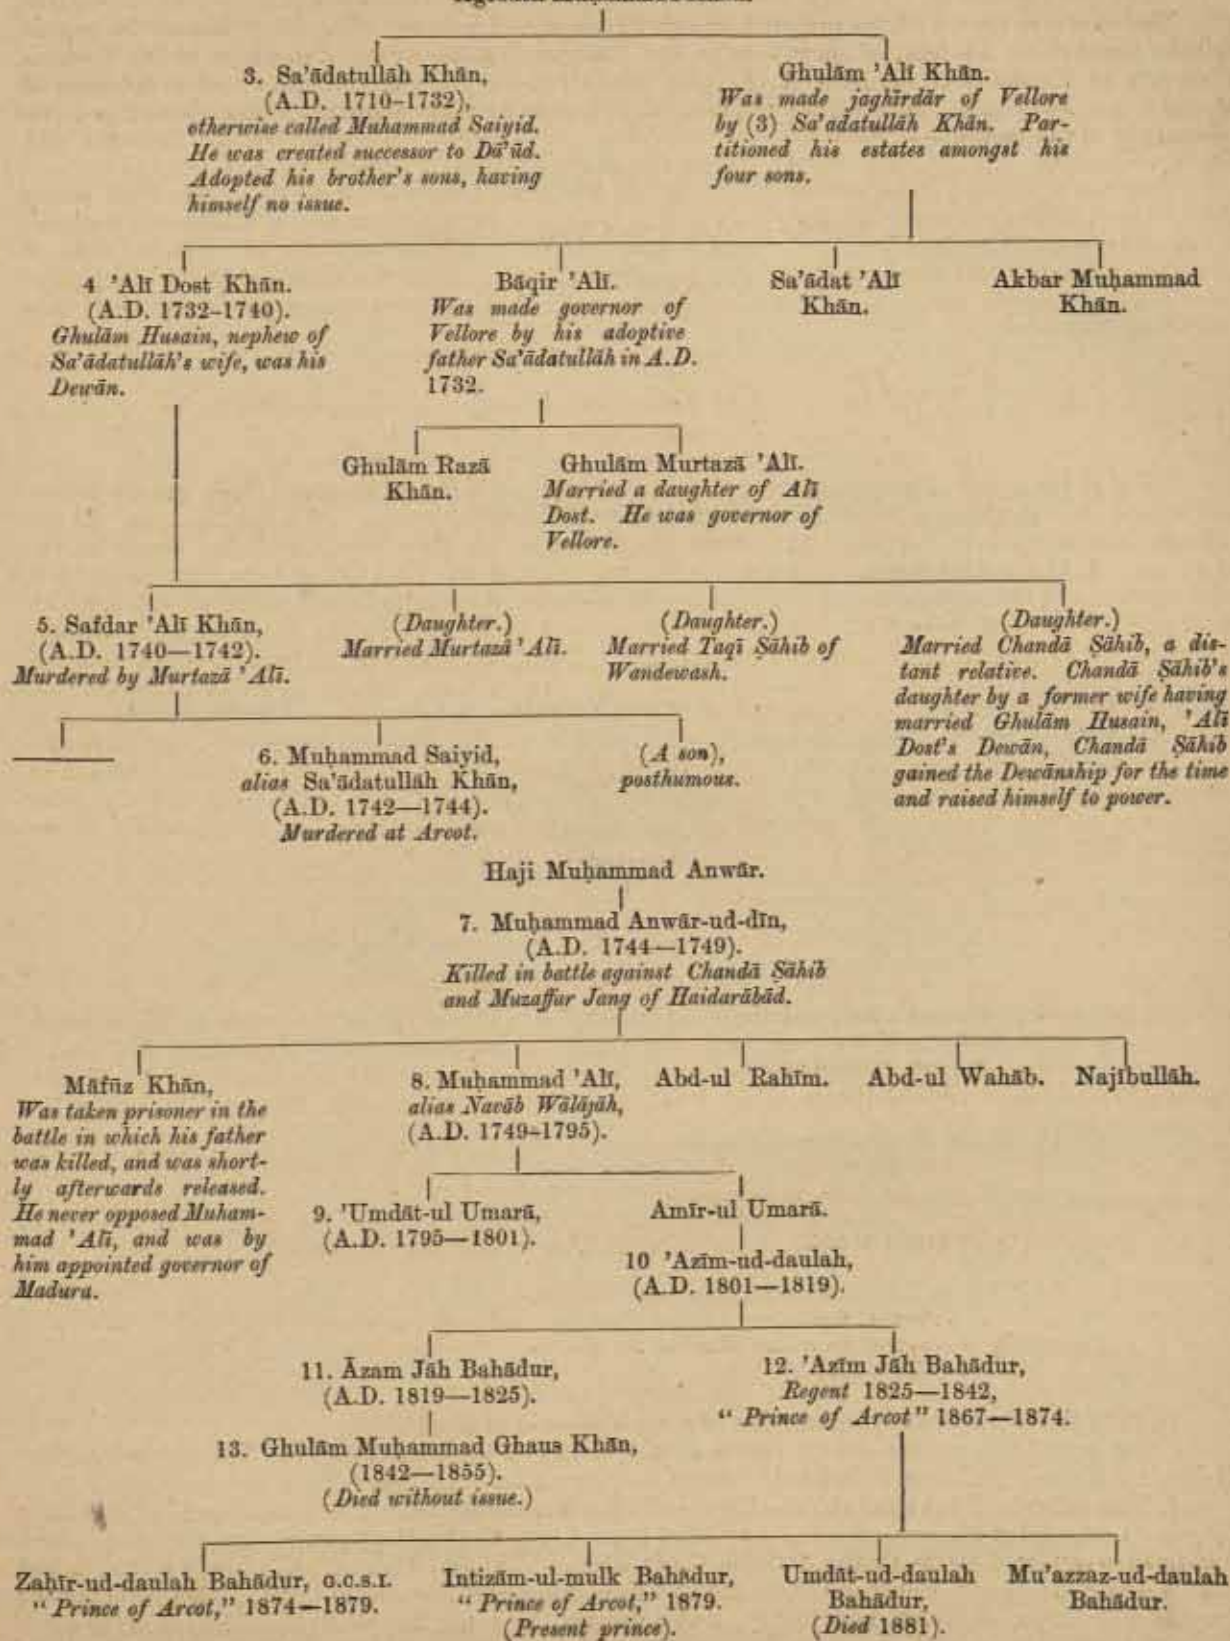 3. Sa'ādatullāh Khān,
(A.D. 1710–1732),
otherwise called Muhammad Saiyid.
He was created successor to Dā'ūd.
Adopted his brother's sons, having
himself no issue.
Ghulām 'Alī Khān.
Was made jaghīrdār of Vellore
by (3) Sa'adatullāh Khān. Par-
titioned his estates amongst his
four sons.
4 'Alī Dost Khān.
(A.D. 1732–1740).
Ghulām Husain, nephew of
Sa'ādatullāh's wife, was his
Dewān.
Bāqir 'Alī.
Was made governor of
Vellore by his adoptive
father Sa'ādatullāh in A.D.
1732.
Sa'ādat 'Alī
Khān.
Akbar Muḥammad
Khān.
Ghulām Razā
Khān.
Ghulām Murtazā 'Alī.
Married a daughter of Alī
Dost. He was governor of
Vellore.
5. Safdar 'Alī Khān,
(A.D. 1740—1742).
Murdered by Murtazā 'Alī.
(Daughter.)
Married Murtazā 'Alī.
(Daughter.)
Married Taqī Ṣāhib of
Wandewash.
(Daughter.)
Married Chandā Ṣāhib, a dis-
tant relative. Chandā Ṣāhib's
daughter by a former wife having
married Ghulām Husain, 'Alī
Dost's Dewān, Chandā Ṣāhib
gained the Dewānship for the time
and raised himself to power.
6. Muḥammad Saiyid,
alias Sa'ādatullāh Khān,
(A.D. 1742—1744).
Murdered at Arcot.
(A son),
posthumous.
Haji Muḥammad Anwār.
7. Muḥammad Anwār-ud-dīn,
(A.D. 1744—1749).
Killed in battle against Chandā Ṣāhib
and Muzaffur Jang of Haidarābād.
Māfūz Khān,
Was taken prisoner in the
battle in which his father
was killed, and was short-
ly afterwards released.
He never opposed Muham-
mad 'Alī, and was by
him appointed governor of
Madura.
8. Muḥammad 'Alī,
alias Navāb Wālājāh,
(A.D. 1749–1795).
Abd-ul Rahīm.
Abd-ul Wahāb.
Najībullāh.
9. 'Umdāt-ul Umarā,
(A.D. 1795—1801).
Amīr-ul Umarā.
10 'Azīm-ud-daulah,
(A.D. 1801—1819).
11. Āzam Jāh Bahādur,
(A.D. 1819—1825).
12. 'Azīm Jāh Bahādur,
Regent 1825—1842,
"Prince of Arcot" 1867—1874.
13. Ghulām Muḥammad Ghaus Khān,
(1842—1855).
(Died without issue.)
Zaḥīr-ud-daulah Bahādur, G.C.S.I.
"Prince of Arcot," 1874—1879.
Intizām-ul-mulk Bahādur,
"Prince of Arcot," 1879.
(Present prince).
Umdāt-ud-daulah
Bahādur,
(Died 1881).
Mu'azzaz-ud-daulah
Bahādur.